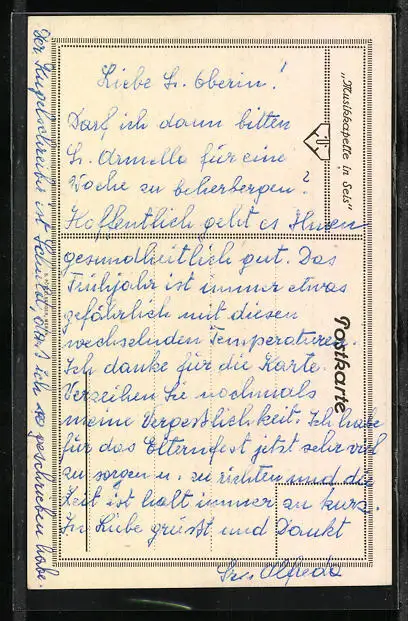 Liebe Sr. Oberin!
Darf ich dann bitten
Sr. Armella für eine
Woche zu beherbergen?
Hoffentlich geht es Ihnen
gesundheitlich gut. Das
Frühjahr ist immer etwas
gefährlich mit diesen
wechselnden Temperaturen.
Ich danke für die Karte.
Verzeihen Sie nochmals
meine Vergesslichkeit. Ich habe
für das Elternfest jetzt sehr viel
zu sorgen u. zu richten und die
Zeit ist halt immer zu kurz.
In Liebe grüsst und Dankt
Alfreda
Der Kugelschreiber ist Schuld, dass ich so geschrieben habe.
„Musikkapelle in Seis"
Postkarte